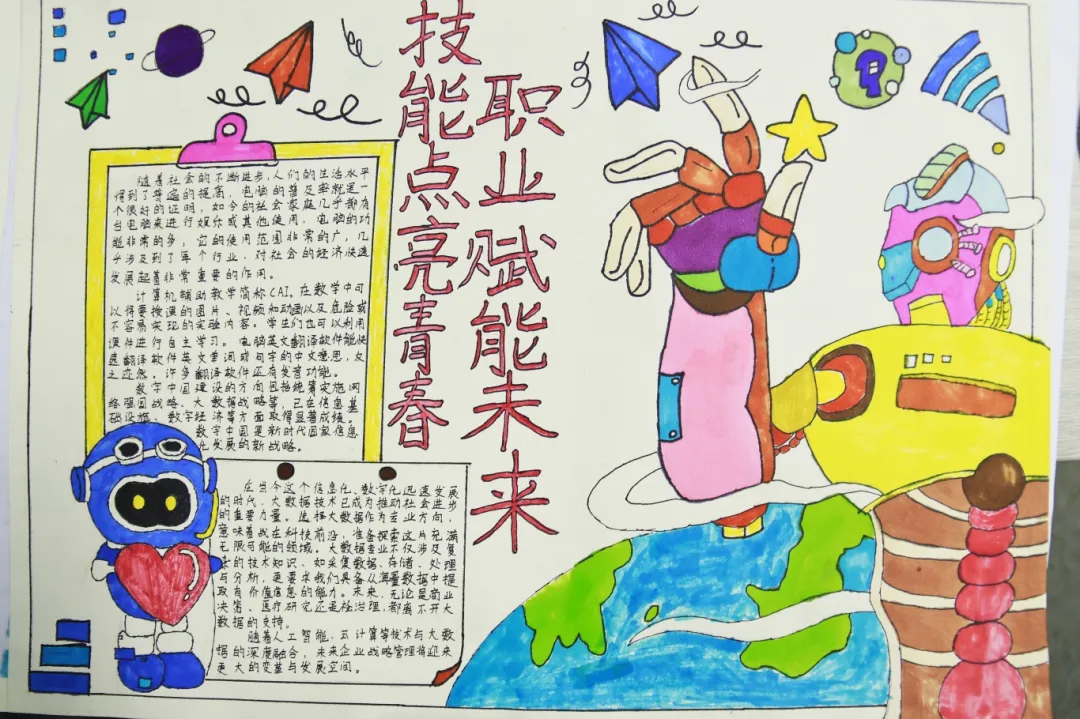 技能点亮青春
职业赋能未来
随着社会的不断进步,人们的生活水平
得到了普遍的提高,电脑的普及率就是一
个很好的证明,如今的社会家庭几乎都有
台电脑来进行娱乐或其他使用,电脑的功
能非常的多,它的使用范围非常的广,几
乎涉及到了每个行业,对社会的经济快速
发展起着非常重要的作用。
计算机辅助教学简称CAI。在教学中可
以将要授课的图片、视频和动画以及危险或
不容易实现的实验内容。学生们也可以利用
课件进行自主学习。电脑英文翻译软件能快
速翻译软件英文单词或句字的中文意思,反
之亦然。许多翻译软件还有发音功能。
数字中国建设的方向包括统筹实施网
络强国战略、大数据战略等,已在信息基
础设施、数字经济等方面取得显著成绩。
数字中国是新时代国家信息
化发展的新战略。
在当今这个信息化、数字化迅速发展
的时代,大数据技术已成为推动社会进步
的重要力量。选择大数据作为专业方向,
意味着战在科技前沿,准备探索这片充满
无限可能的领域。大数据专业不仅涉及复
杂的技术知识、如采集数据、存储、处理
与分析,更要求我们具备从海量数据中提
取有价值信息的能力。未来,无论是商业
决策、医疗研究还是社治理,都离不开大
数据的支持。
随着人工智能、云计算等技术与大数
据的深度融合,未来企业战略管理将迎来
更大的变革与发展空间。